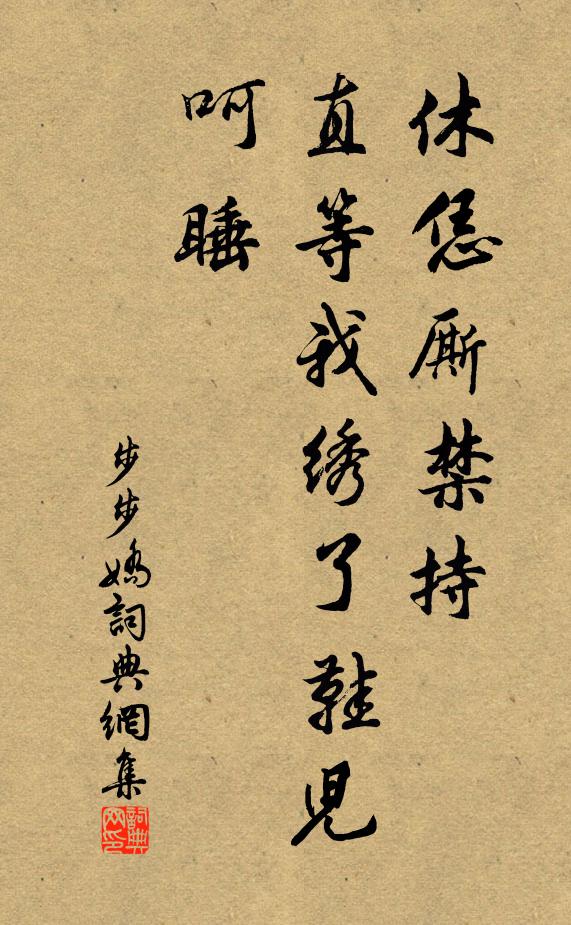 休恁厮禁持
直等我绣了鞋兒
呵睡
步步嬌詞典網集
詞典网印